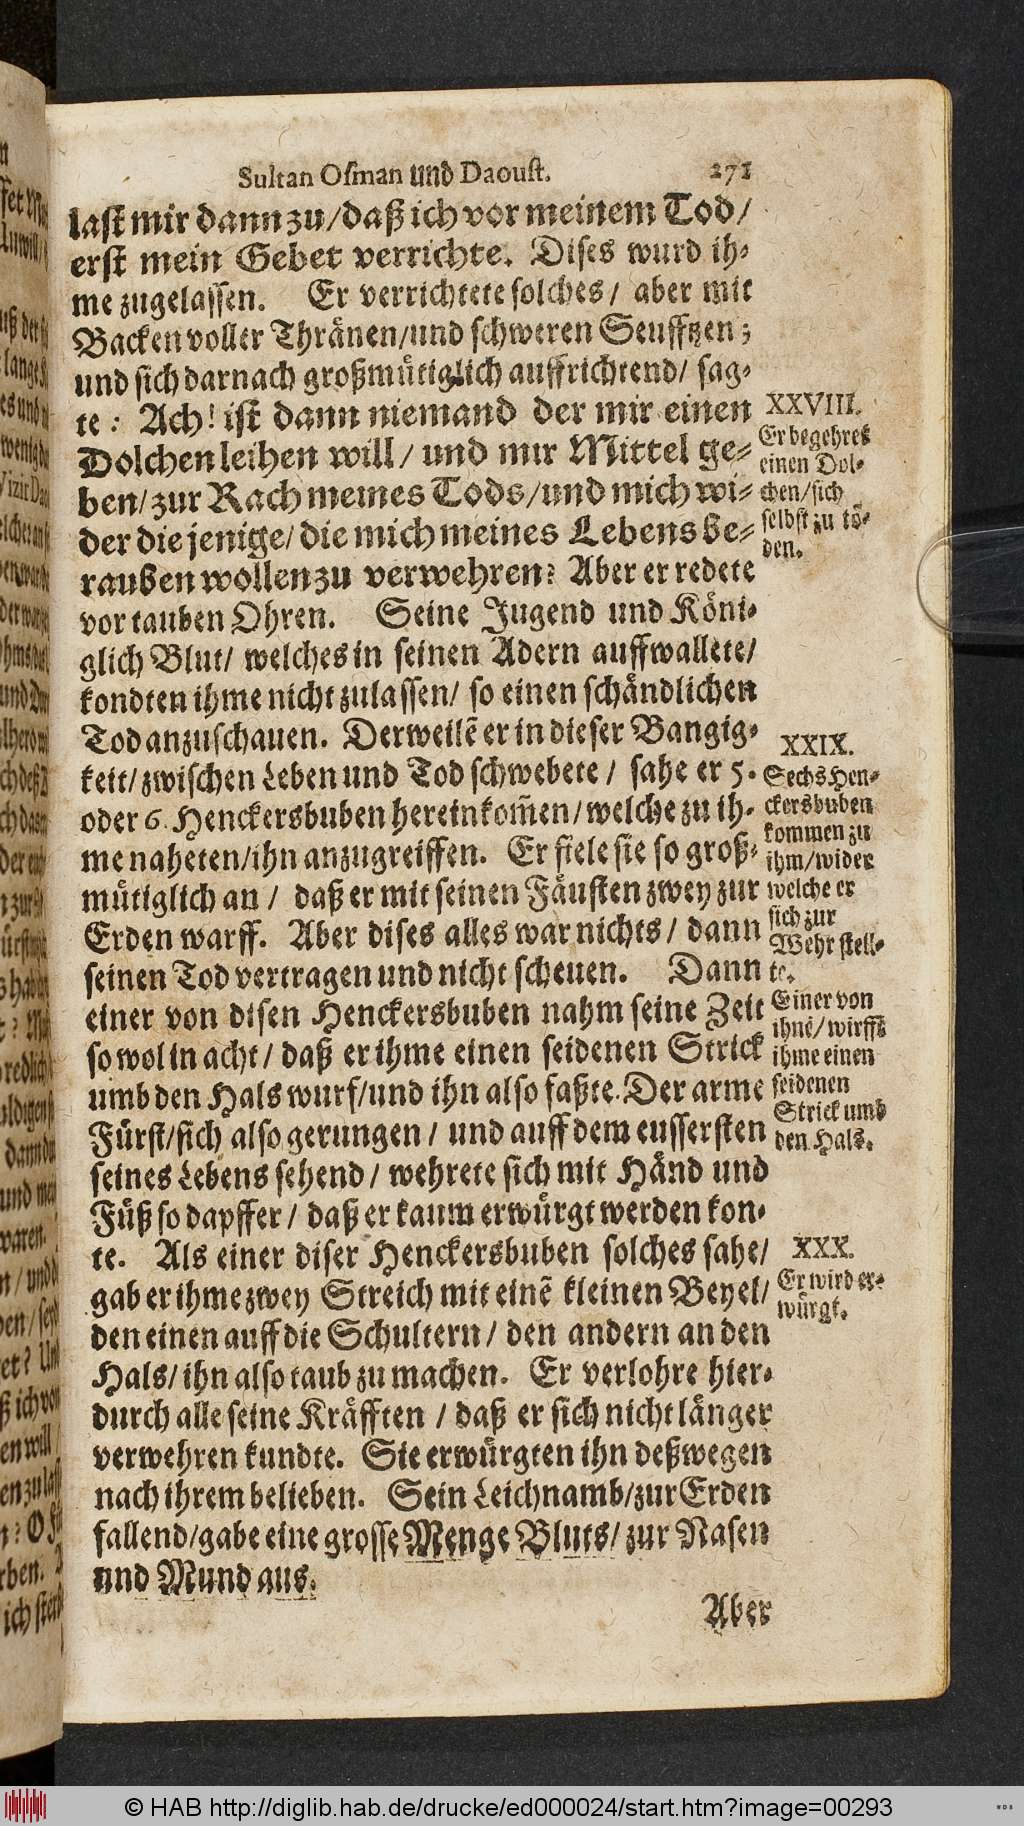 Sultan Osman und Daoust. 271
last mir dann zu/daß ich vor meinem Tod/
erst mein Gebet verrichte. Dises wurd ih-
me zugelassen. Er verrichtete solches/ aber mit
Backen voller Thränen/und schweren Seufftzen;
und sich darnach großmütiglich auffrichtend/ sag-
te: Ach! ist dann niemand der mir einen
Dolchen leihen will/ und mir Mittel ge-
ben/zur Rach meines Tods/und mich wi-
der die jenige/die mich meines Lebens be-
rauben wollen zu verwehren? Aber er redete
vor tauben Ohren. Seine Jugend und Köni-
glich Blut/ welches in seinen Adern auffwallete/
kondten ihme nicht zulassen/ so einen schändlichen
Tod anzuschauen. Derweilẽ er in dieser Bangig-
keit/zwischen Leben und Tod schwebete/ sahe er 5.
oder 6. Henckersbuben hereinkom̃en/welche zu ih-
me naheten/ihn anzugreiffen. Er fiele sie so groß-
mütiglich an/ daß er mit seinen Fäusten zwey zur
Erden warff. Aber dises alles war nichts/ dann
seinen Tod vertragen und nicht scheuen. Dann
einer von disen Henckersbuben nahm seine Zeit
so wol in acht/ daß er ihme einen seidenen Strick
umb den Hals wurf/und ihn also faßte. Der arme
Fürst/sich also gerungen/ und auff dem eussersten
seines Lebens sehend/ wehrete sich mit Händ und
Füß so dapffer/ daß er kaum erwürgt werden kon-
te. Als einer diser Henckersbuben solches sahe/
gab er ihme zwey Streich mit einẽ kleinen Beyel/
den einen auff die Schultern/ den andern an den
Hals/ihn also taub zu machen. Er verlohre hier-
durch alle seine Kräfften/ daß er sich nicht länger
verwehren kundte. Sie erwürgten ihn deßwegen
nach ihrem belieben. Sein Leichnamb/zur Erden
fallend/gabe eine grosse Menge Bluts/ zur Nasen
und Mund aus.
Aber
XXVIII.
Er begehret
einen Dol-
chen/sich
selbst zu tö-
den.
XXIX.
Sechs Hen-
ckersbuben
kommen zu
ihm/wider
welche er
sich zur
Wehr stell-
te.
Einer von
ihnẽ/wirfft
ihme einen
seidenen
Strick umb
den Hals.
XXX.
Er wird er-
würgt.
© HAB http://diglib.hab.de/drucke/ed000024/start.htm?image=00293